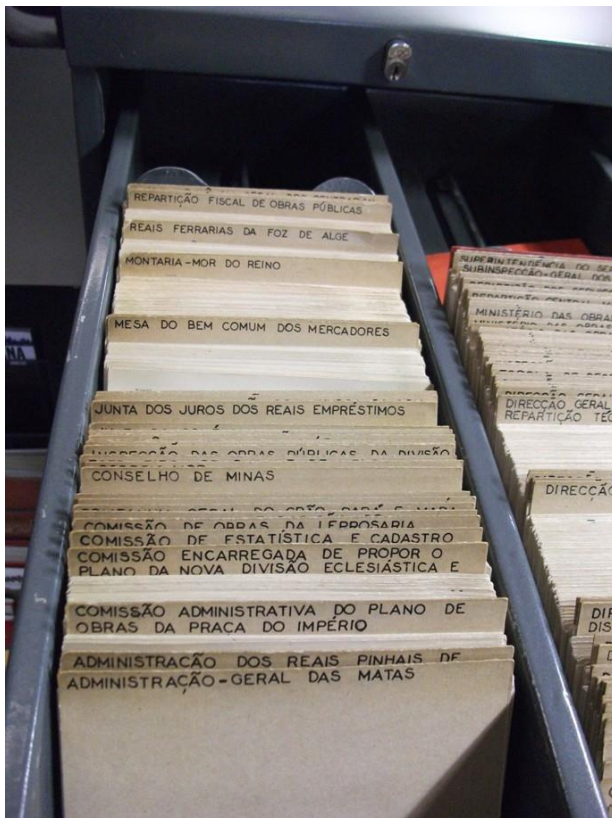 REPARTIÇÃO FISCAL DE OBRAS PÚBLICAS
REAIS FERRARIAS DA FOZ DE ALGE
MONTARIA-MOR DO REINO
MESA DO BEM COMUM DOS MERCADORES
JUNTA DOS JUROS DOS REAIS EMPRÉSTIMOS
INSPECÇÃO DAS OBRAS PÚBLICAS DA DIVISÃO
CONSELHO DE MINAS
GERAL DO GRÃO PARÁ E
COMISSÃO DE OBRAS DA LEPROSARIA
COMISSÃO DE ESTATÍSTICA E CADASTRO
COMISSÃO ENCARREGADA DE PROPOR O
PLANO DA NOVA DIVISÃO ECLESIÁSTICA E
COMISSÃO ADMINISTRATIVA DO PLANO DE
OBRAS DA PRAÇA DO IMPÉRIO
ADMINISTRAÇÃO DOS REAIS PINHAIS DE
ADMINISTRAÇÃO-GERAL DAS MATAS
SUPERINTENDÊNCIA DO
SUBINSPECÇÃO-GERAL DOS
REPARTIÇÃO CENTRAL
MINISTÉRIO DAS OBRA
MINISTÉRIO DAS OBRAS
DIRECÇÃO GERAL
REPARTIÇÃO TEC
DIRECÇÃO
NA